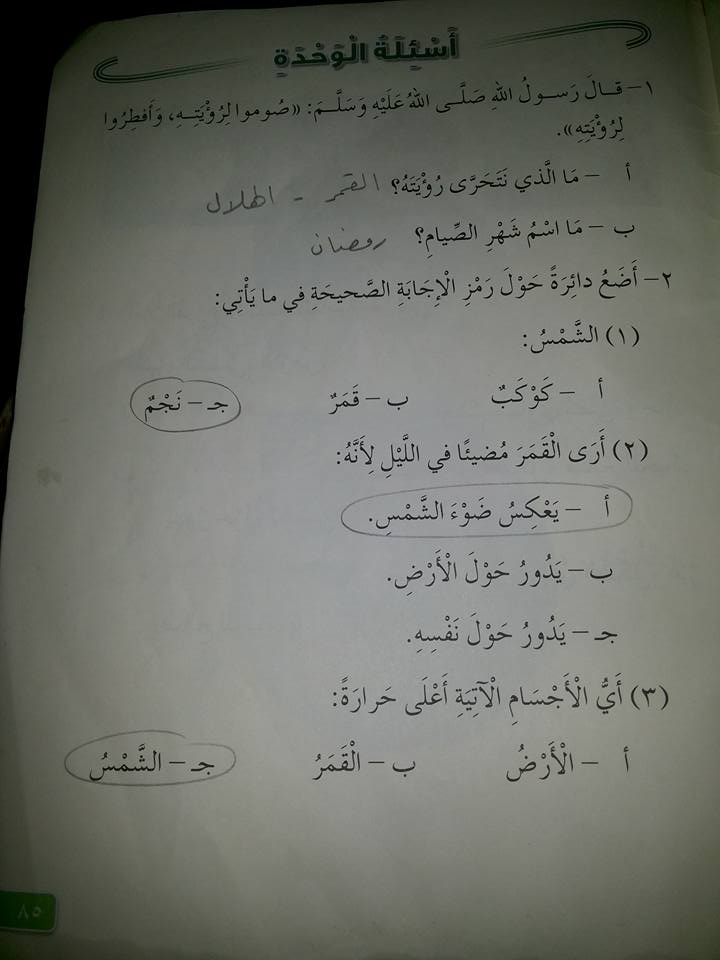 أَسْئِلَةُ الْوَحْدَةِ
١- قـالَ رَسـولُ اللهِ صَلَّـى اللهُ عَلَيْهِ وَسَلَّـمَ: «صُوموا لِرُؤْيَتِـهِ، وَأَفطِرُوا
لِرُؤْيَتِهِ».
أ - مَا الَّذي نَتَحَرَّى رُؤْيَتَهُ؟ القمر - الهلال
ب - مَا اسْمُ شَهْرِ الصِّيامِ؟ رمضان
٢- أَضَعُ دائِرَةً حَوْلَ رَمْزِ الْإِجَابَةِ الصَّحيحَةِ في ما يَأْتِي:
(١) الشَّمْسُ:
أ - كَوْكَبٌ ب - قَمَرٌ جـ - نَجْمٌ
(٢) أَرَى الْقَمَرَ مُضيئًا في اللَّيْلِ لِأَنَّهُ:
أ - يَعْكِسُ ضَوْءَ الشَّمْسِ.
ب - يَدُورُ حَوْلَ الْأَرْضِ.
جـ - يَدُورُ حَوْلَ نَفْسِهِ.
(٣) أَيُّ الْأَجْسَامِ الْآتِيَةِ أَعْلَى حَرارَةً:
أ - الْأَرْضُ ب - الْقَمَرُ جـ - الشَّمْسُ
٨٥